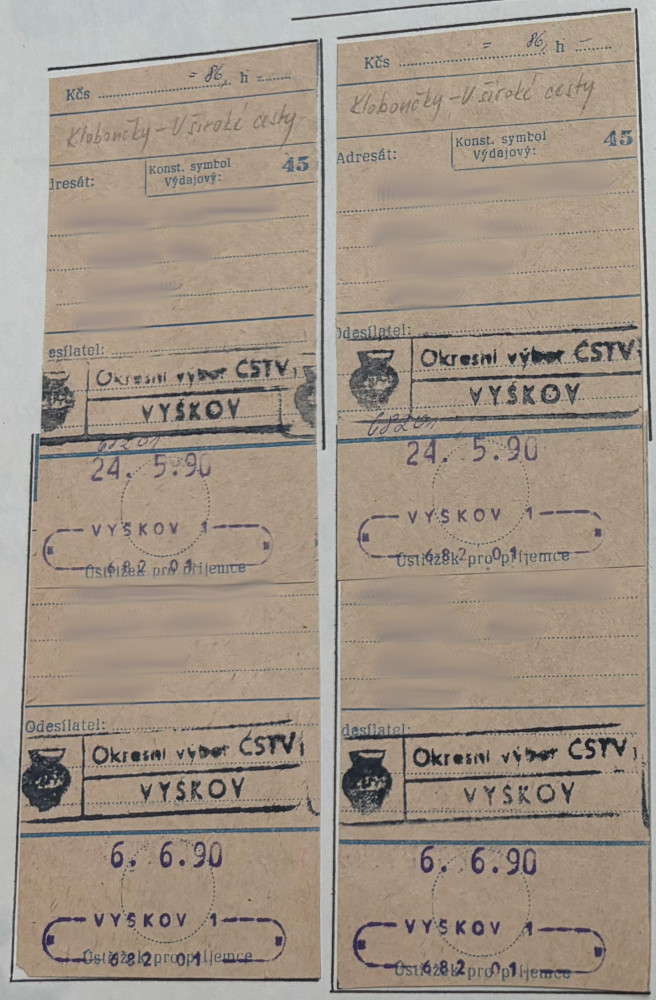 Kčs = 86, h
Kloboučky - U široké cesty
Konst. symbol
Výdajový:
45
dresát:
esílatel:
Okresní výbor ČSTV,
VYŠKOV
68201
24. 5.90
VYŠKOV 1
682 01
Ústřižek pro příjemce
Odesílatel:
Okresní výbor ČSTV,
VYŠKOV
6. 6.90
VYŠKOV 1
682 01
Ústřižek pro příjemce
Kčs = 86, h
Kloboučky - U široké cesty
Konst. symbol
Výdajový:
45
Adresát:
Odesílatel:
Okresní výbor ČSTV,
VYŠKOV
68201
24. 5.90
VYŠKOV 1
682 01
Ústřižek pro příjemce
desílatel:
Okresní výbor ČSTV,
VYŠKOV
6. 6.90
VYŠKOV 1
682 01
Ústřižek pro příjemce